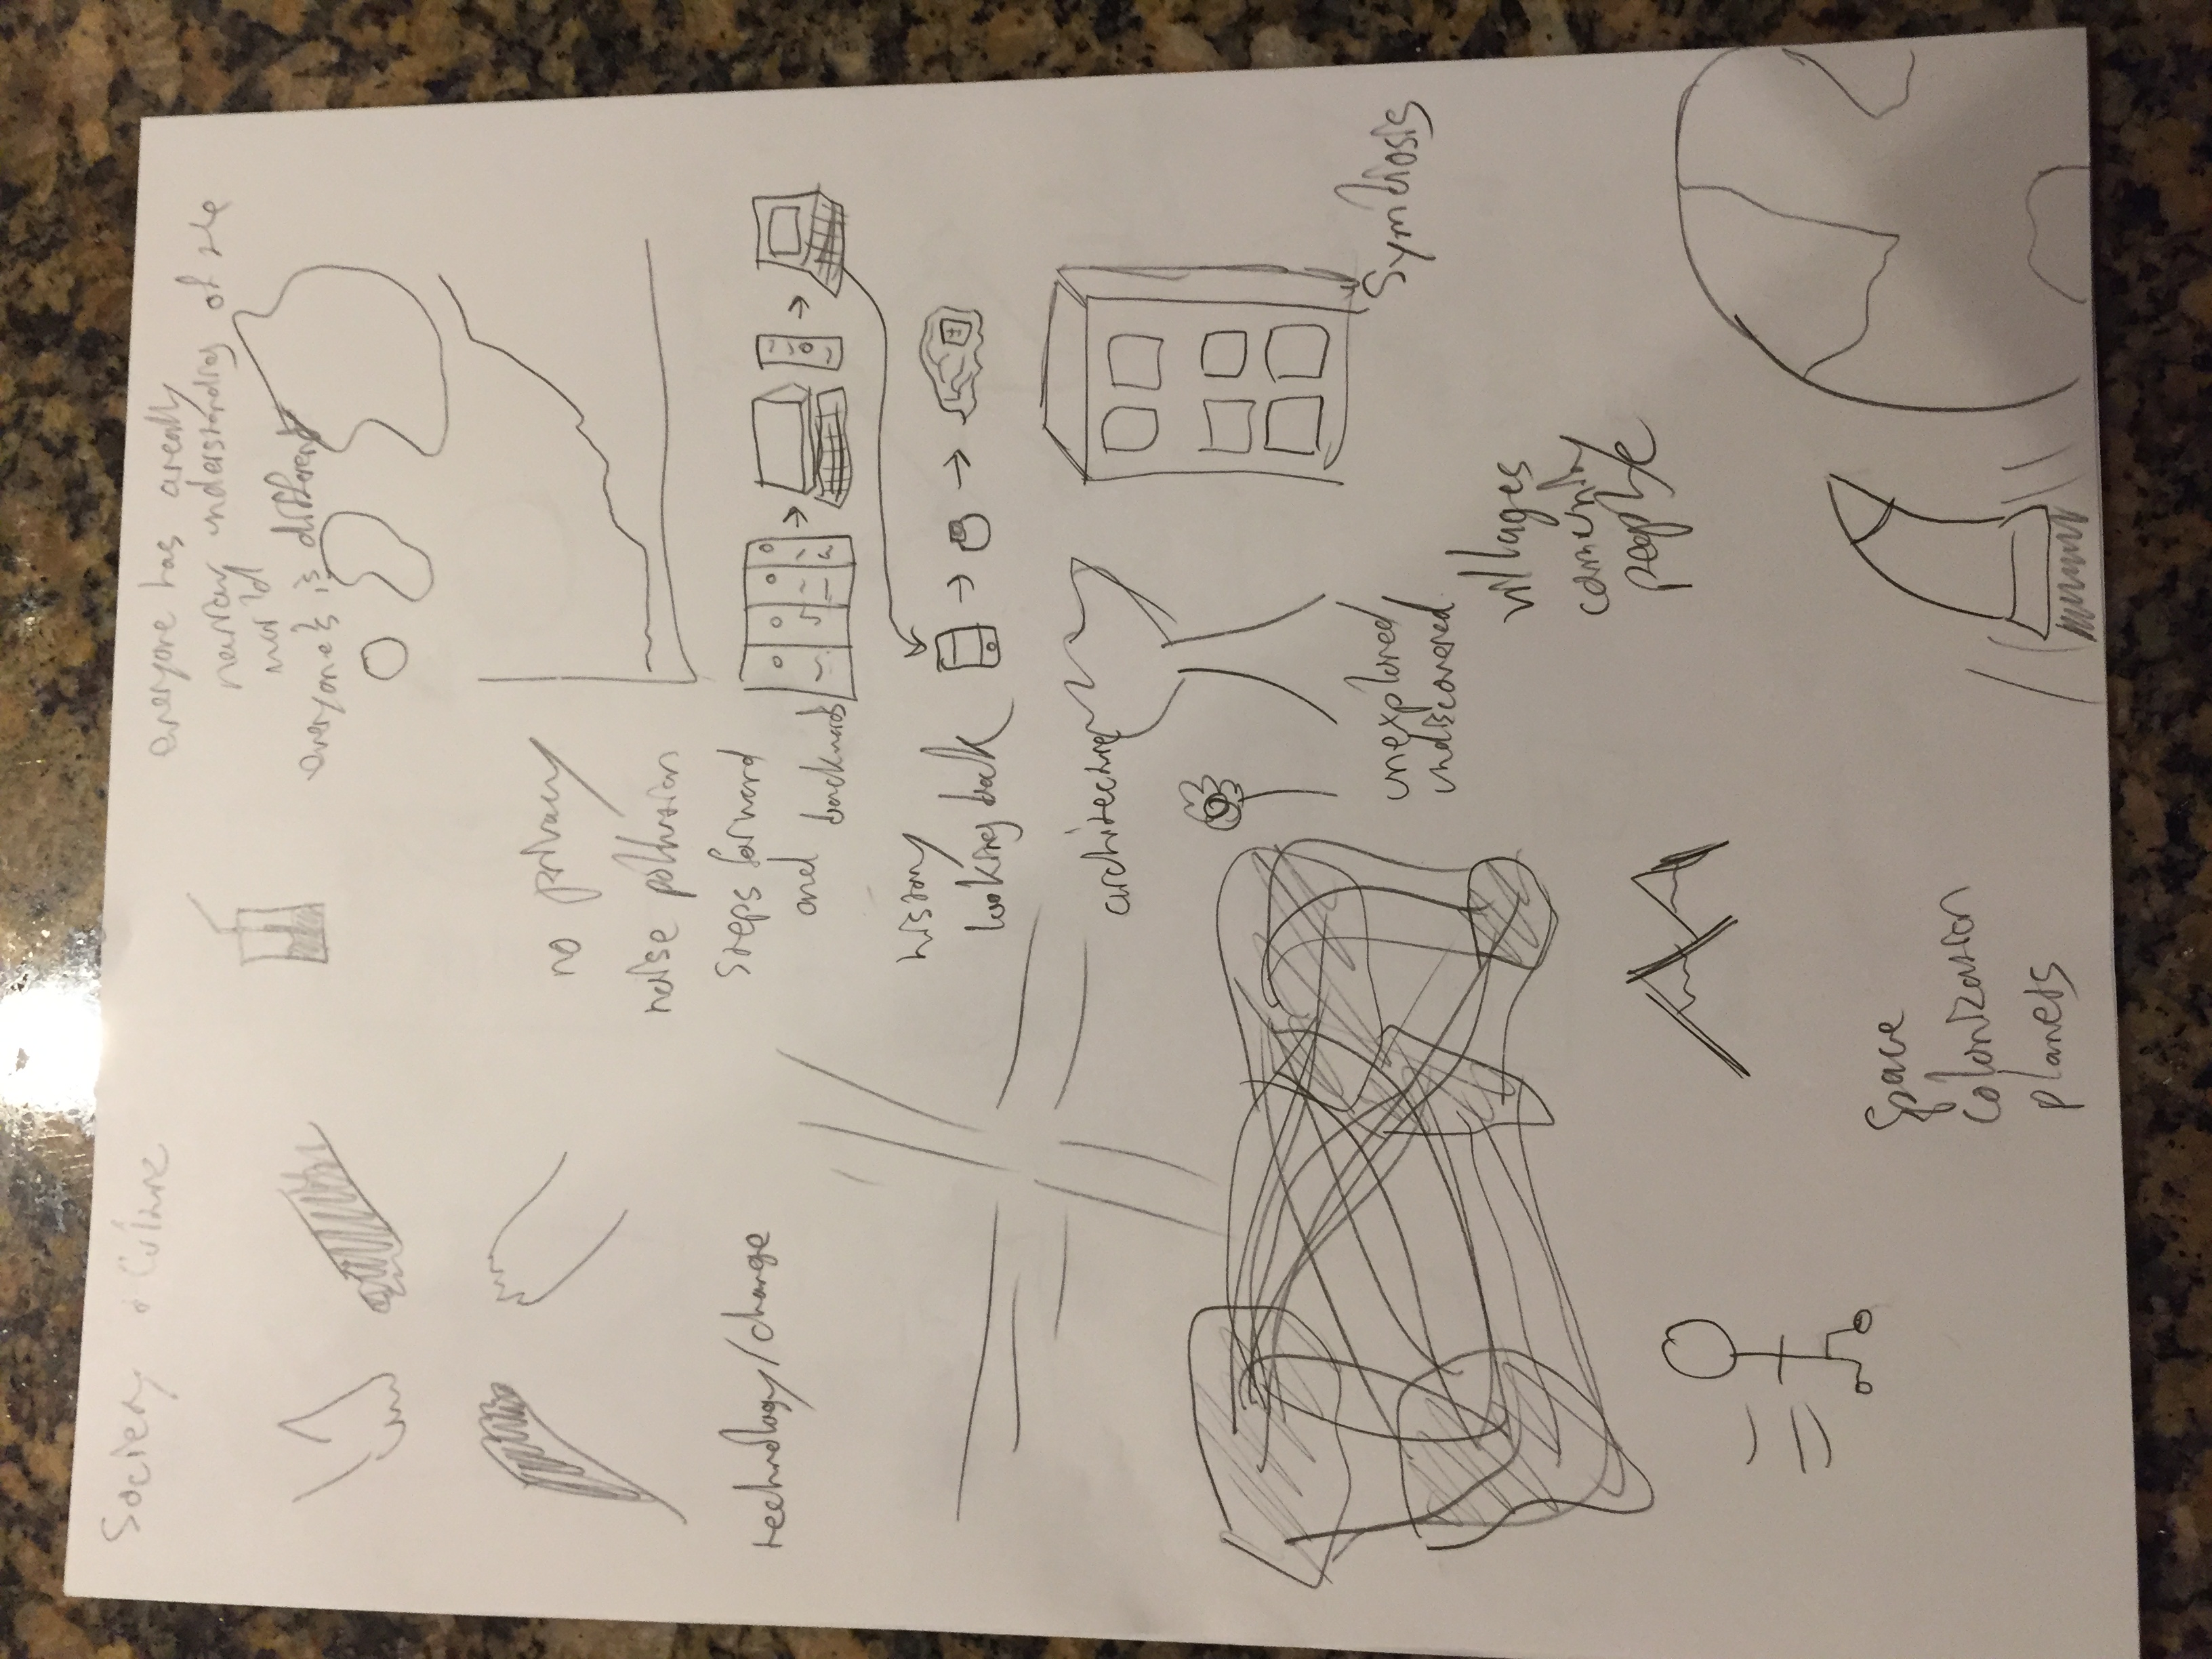 Society & Culture
everyone has a really
narrow understanding of the
world
everyone's is different
no privacy
noise pollution
technology/change
steps forward
and
backwards
history
looking back
architecture
unexplored
undiscovered
Symbiosis
villages
comunity
people
Space
colonization
planets